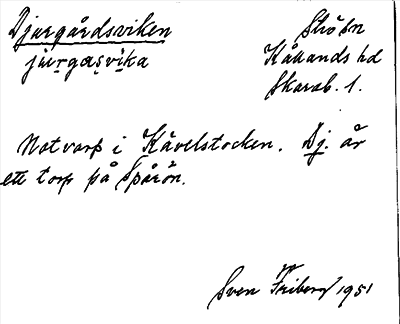 Djurgårdsviken
jurgasvika
Kållands hd
Skarab. l.
Notvarp i Kåvelstocken. Dj. är
ett torp på Spårön.
Sven Friberg 1951